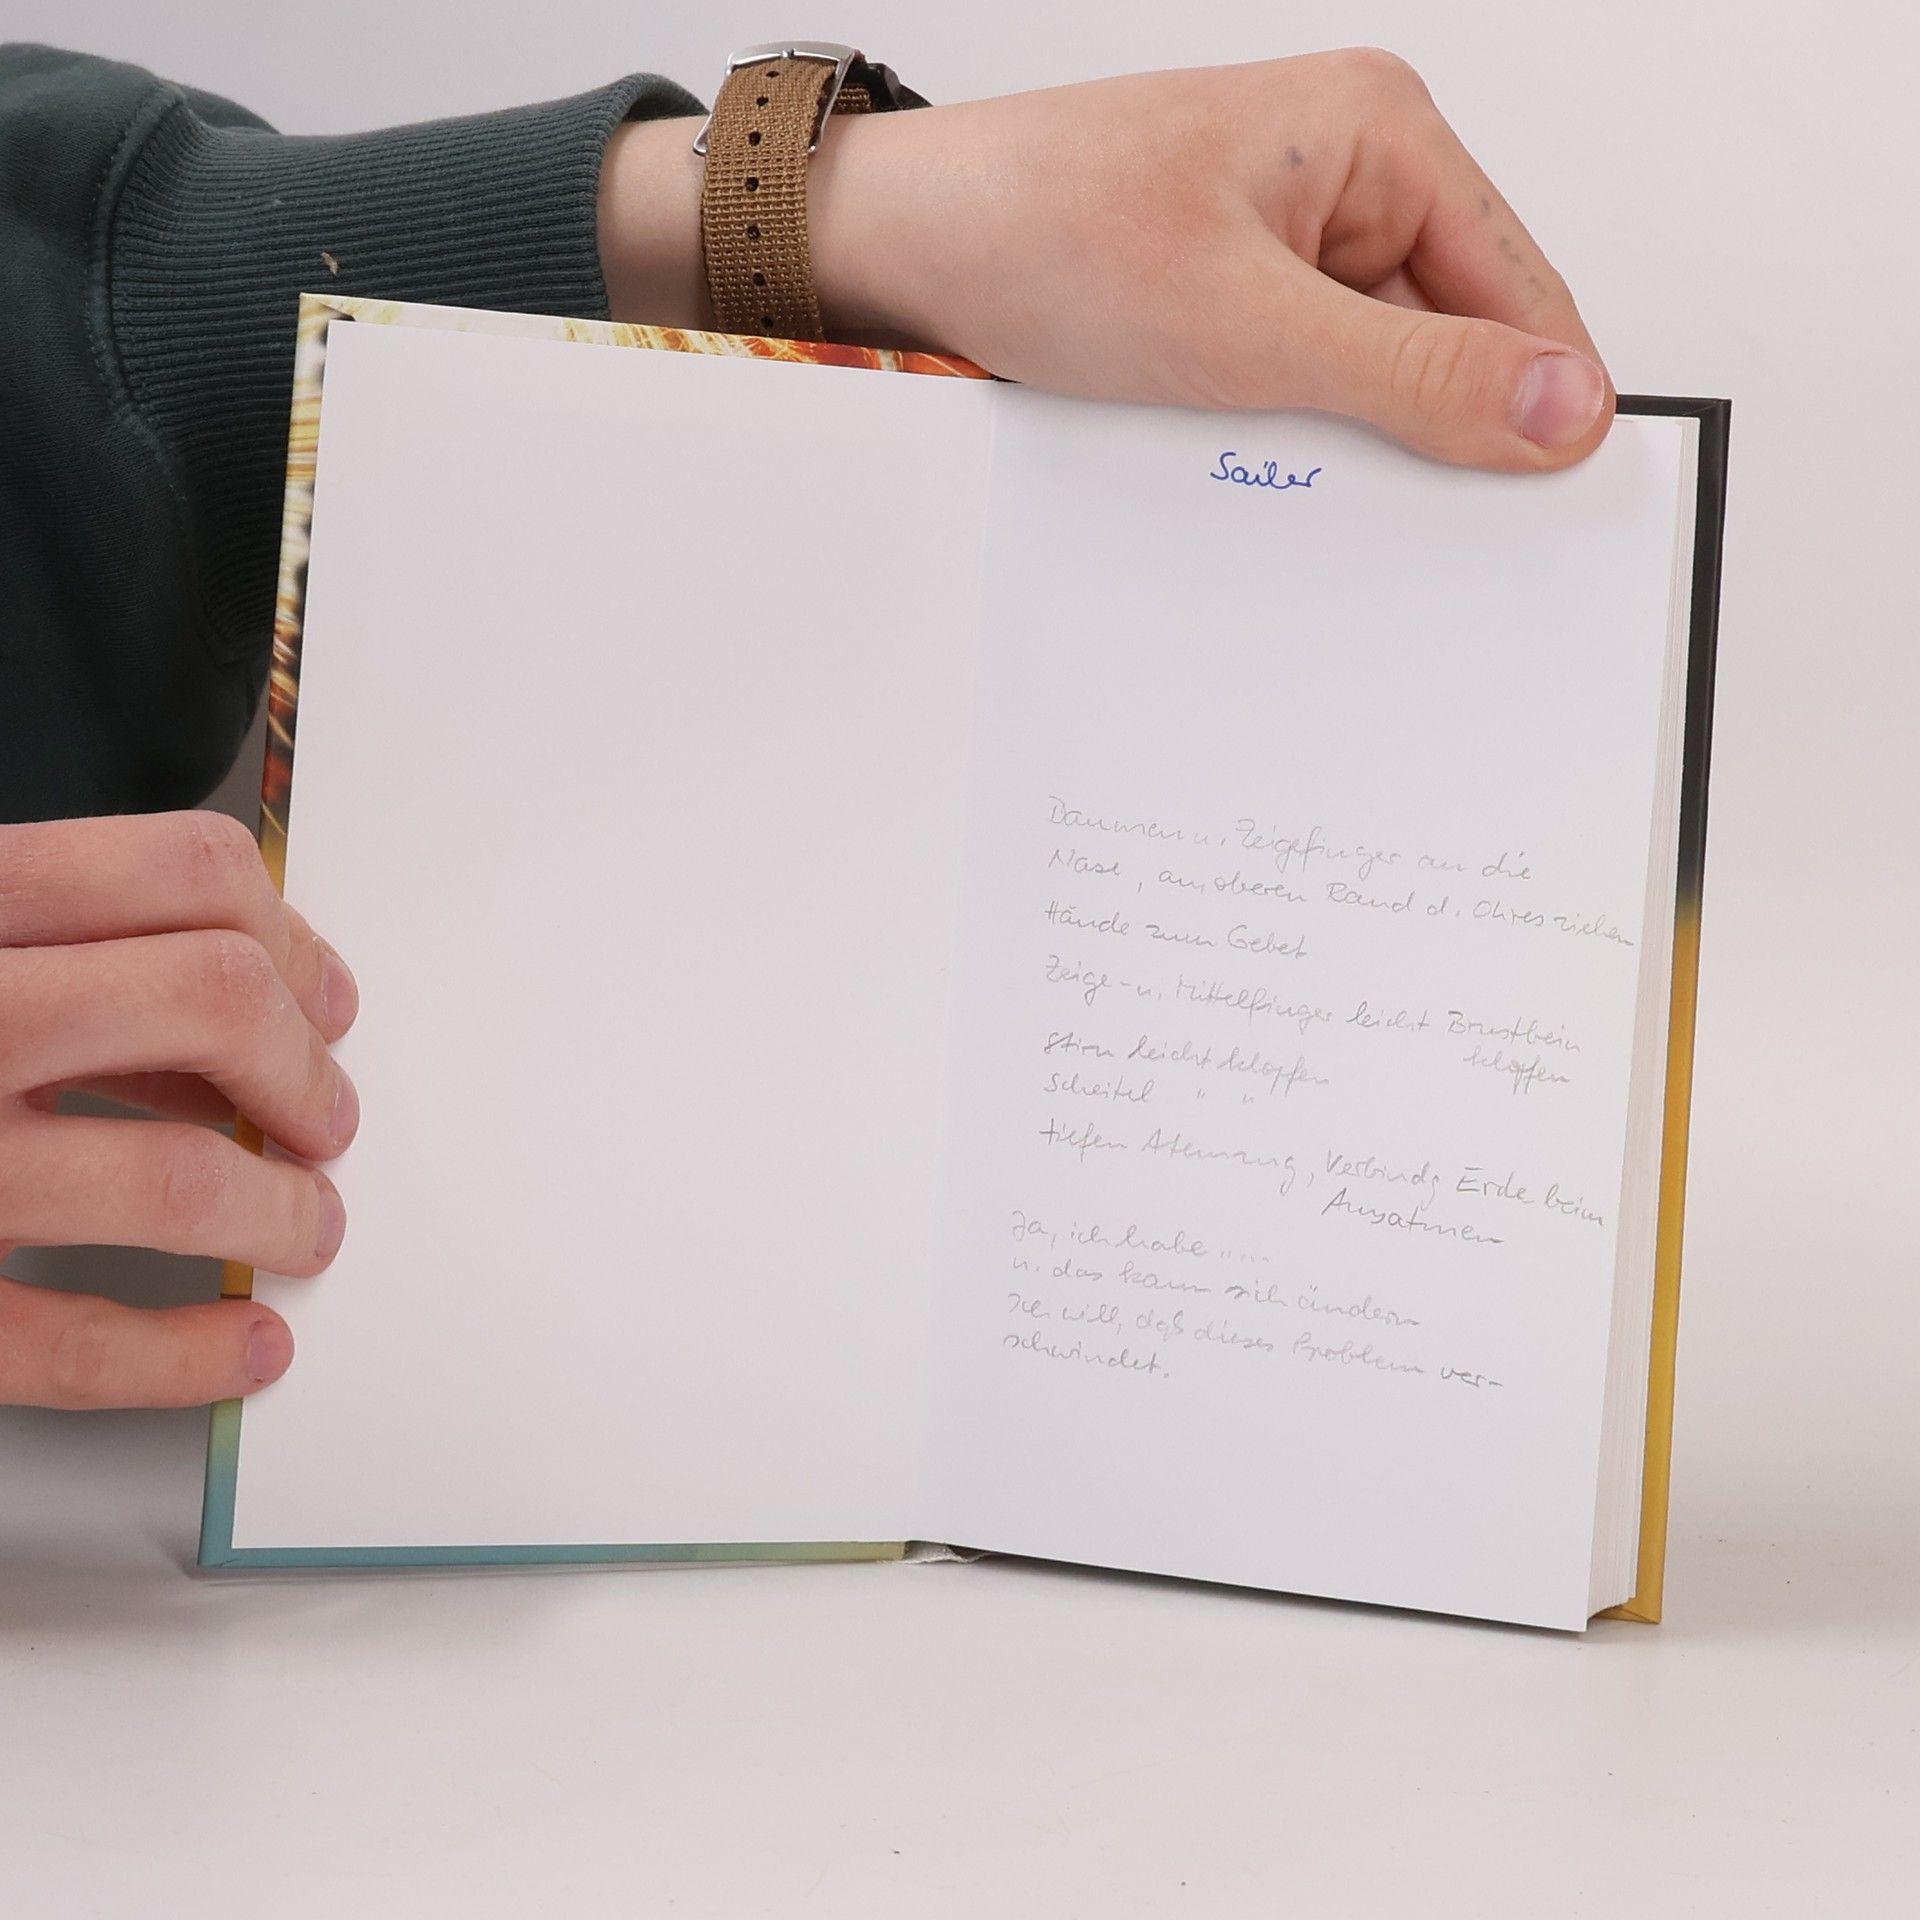 Sailer
Daumen u. Zeigefinger an die
Nase, am oberen Rand d. Ohres ziehen
Hände zum Gebet
Zeige- u. Mittelfinger leicht Brustbein
klopfen
Stirn leicht klopfen
Scheitel " "
tiefen Atemzug, Verbindg Erde beim
Ausatmen
Ja, ich habe .....
u. das kann sich ändern
Ich will, daß dieses Problem ver-
schwindet.